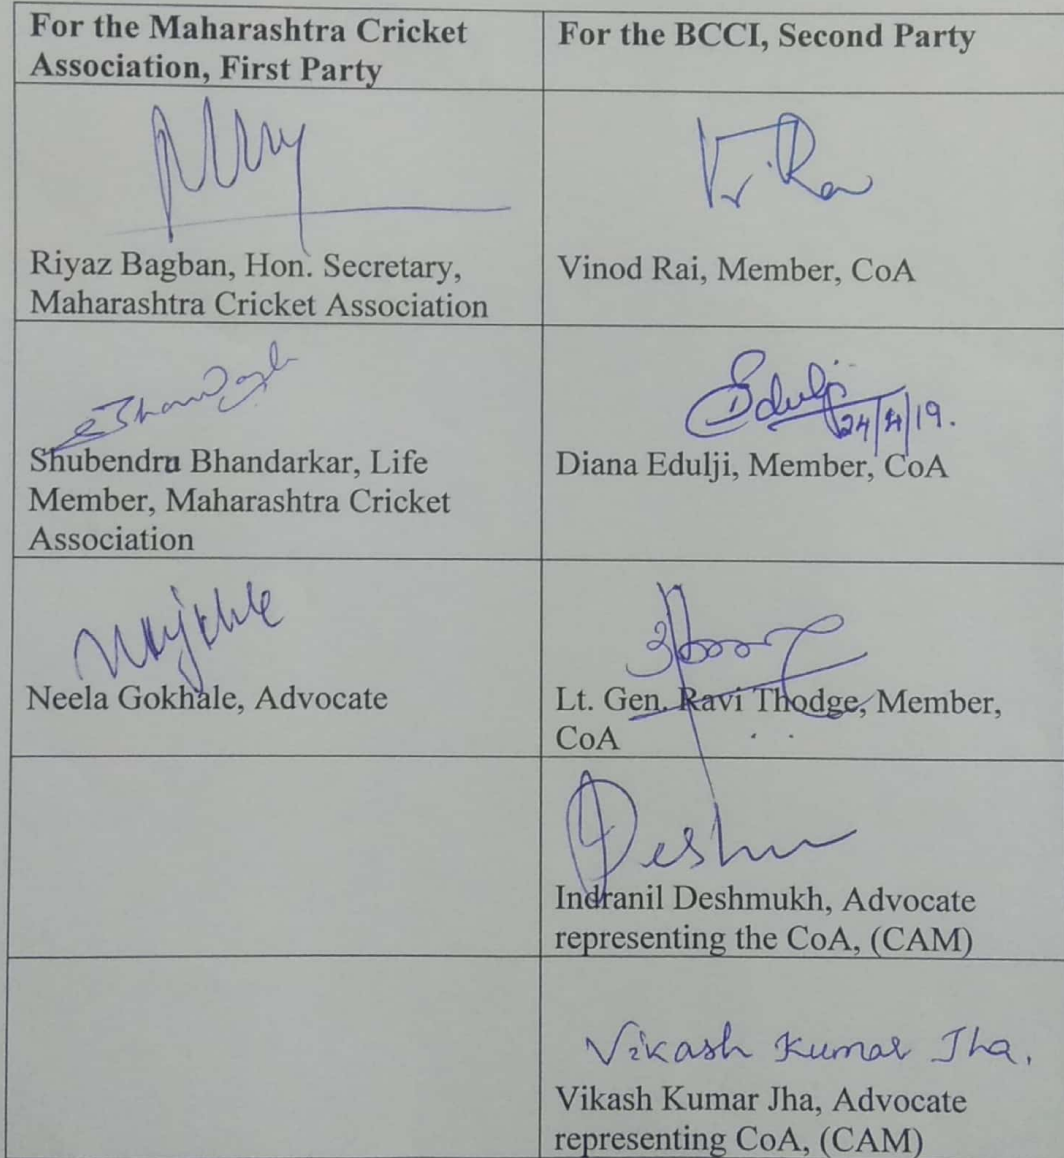 For the Maharashtra Cricket
Association, First Party
For the BCCI, Second Party
Riyaz Bagban, Hon. Secretary,
Maharashtra Cricket Association
Vinod Rai, Member, CoA
Shubendra Bhandarkar, Life
Member, Maharashtra Cricket
Association
Edulji
24/4/19.
Diana Edulji, Member, CoA
Neela Gokhale, Advocate
Lt. Gen. Ravi Thodge, Member,
CoA
Indranil Deshmukh, Advocate
representing the CoA, (CAM)
Vikash Kumar Jha.
Vikash Kumar Jha, Advocate
representing CoA, (CAM)